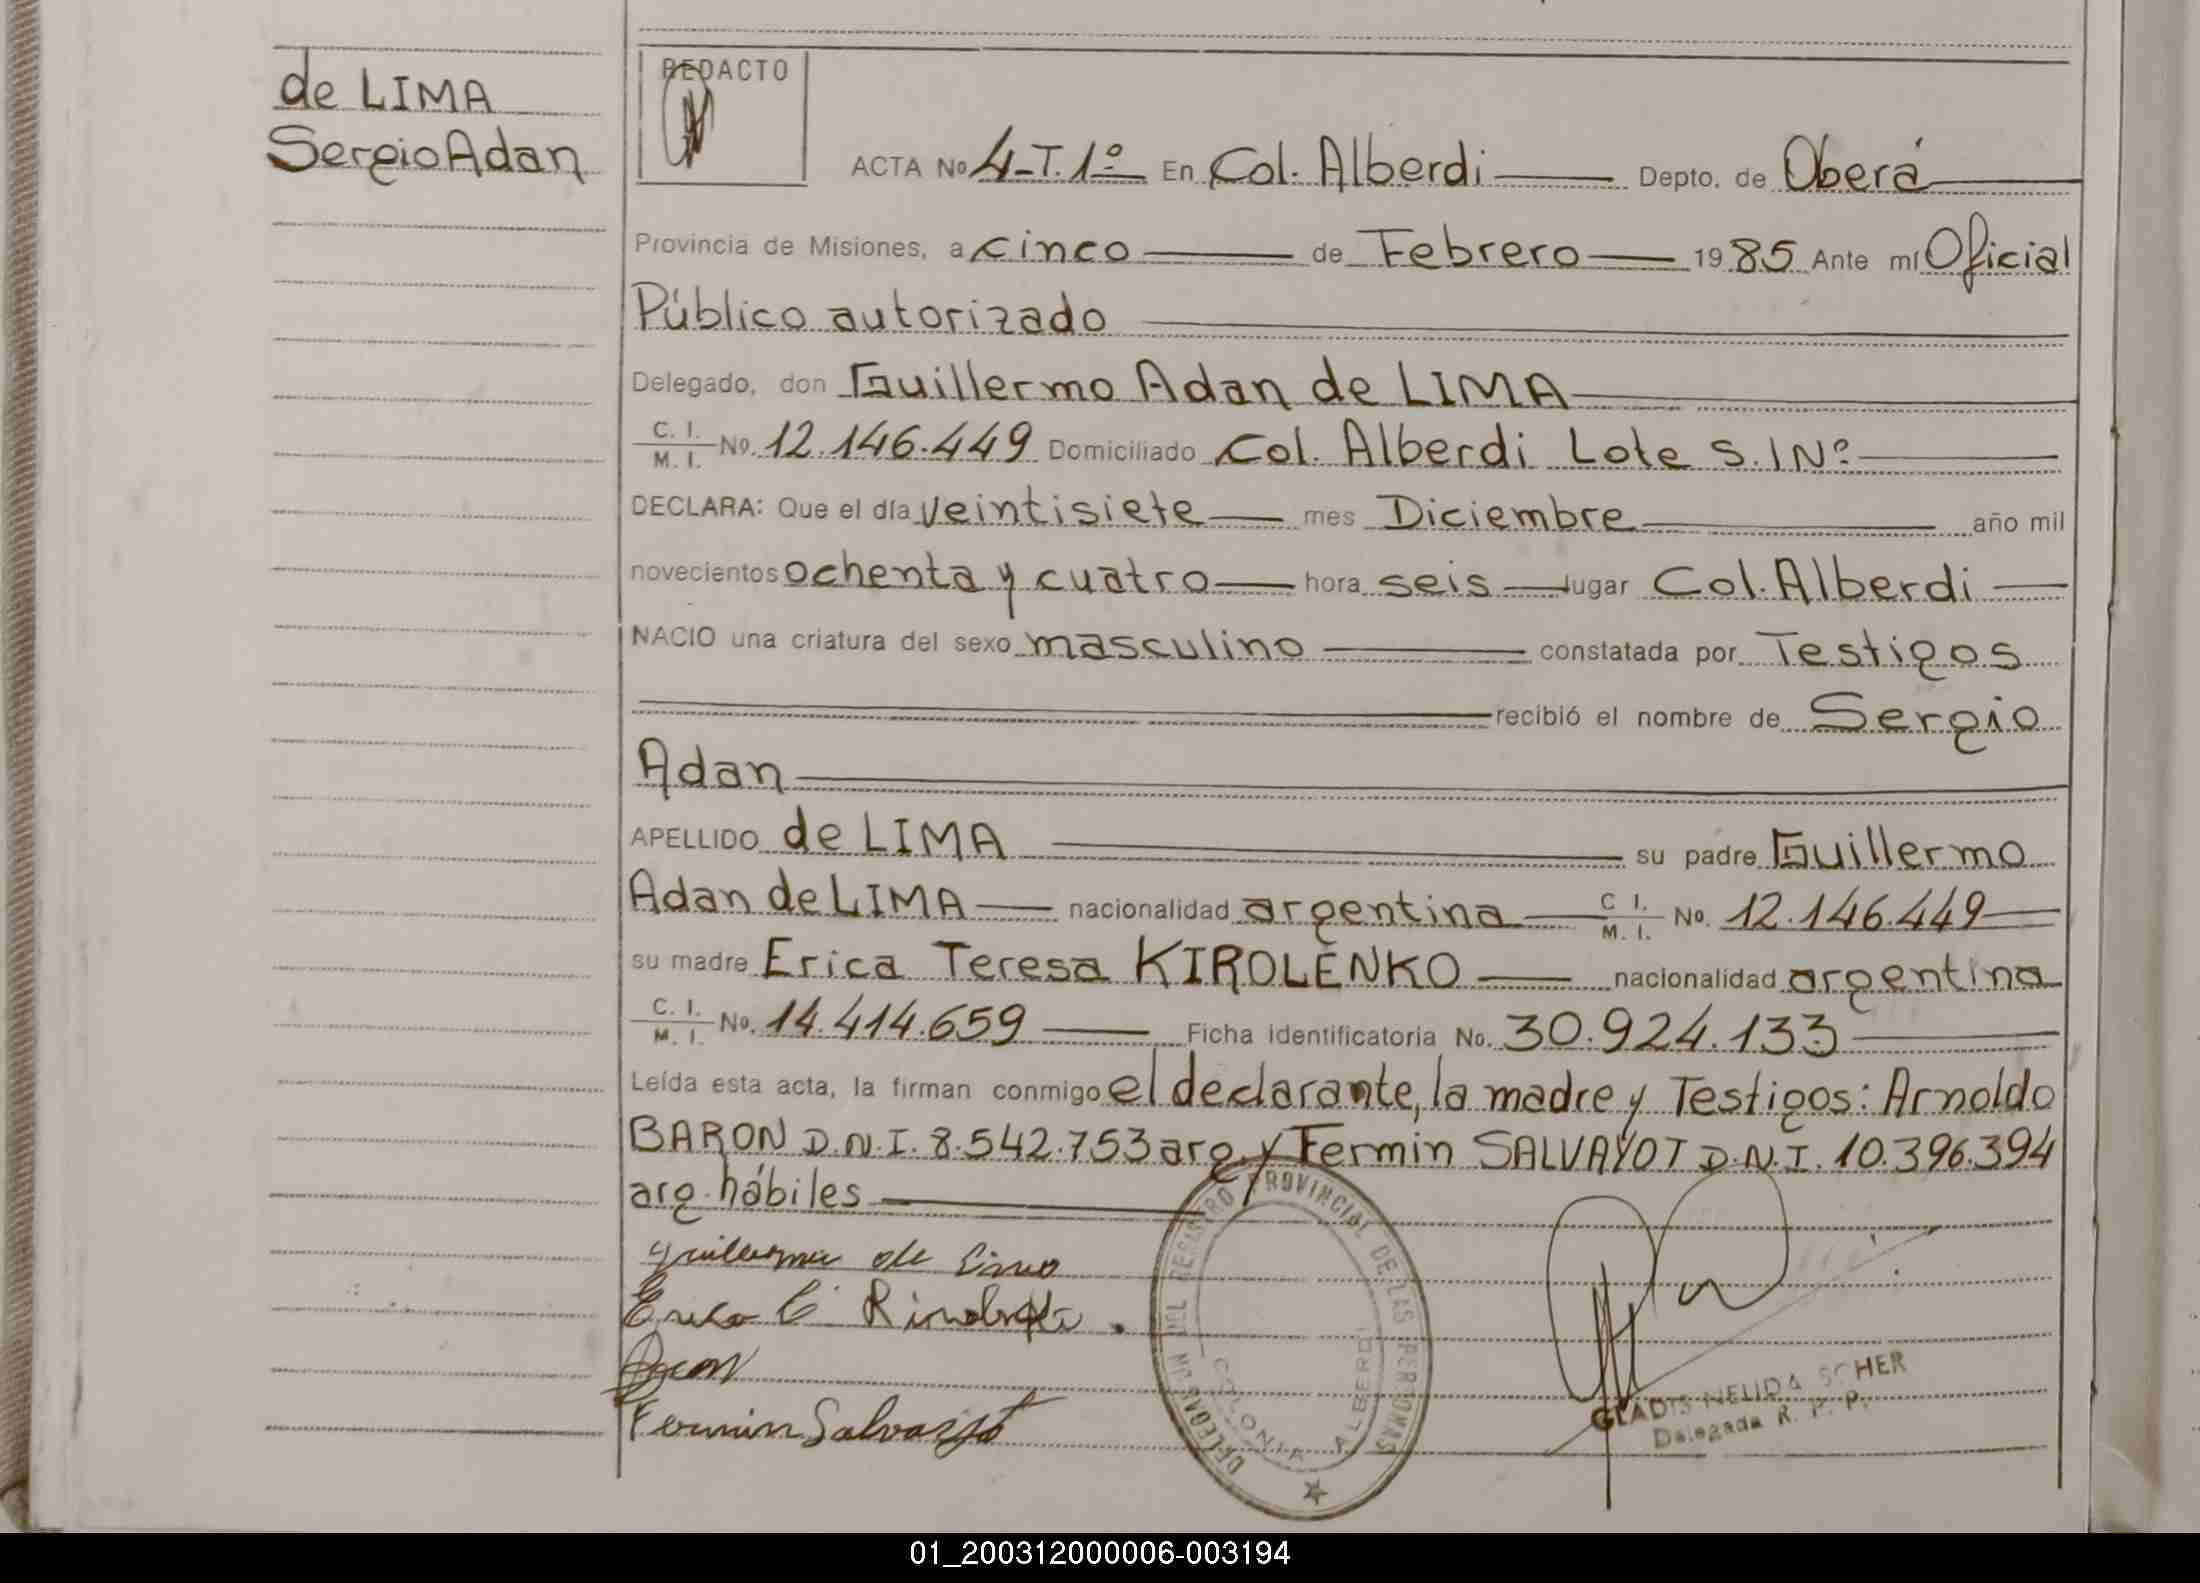 de LIMA
Sergio Adan
REDACTO
ACTA No 4-T.1º En Col. Alberdi Depto. de Oberá
Provincia de Misiones, a cinco de Febrero 1985 Ante mí Oficial
Público autorizado
Delegado, don Guillermo Adan de LIMA
C. I. / M. I. No. 12.146.449 Domiciliado Col. Alberdi Lote S./Nº
DECLARA: Que el día veintisiete mes Diciembre año mil
novecientos ochenta y cuatro hora seis lugar Col. Alberdi
NACIO una criatura del sexo masculino constatada por Testigos
recibió el nombre de Sergio
Adan
APELLIDO de LIMA su padre Guillermo
Adan de LIMA nacionalidad argentina C. I. / M. I. No. 12.146.449
su madre Erica Teresa KIROLENKO nacionalidad argentina
C. I. / M. I. No. 14.414.659 Ficha identificatoria No. 30.924.133
Leída esta acta, la firman conmigo el declarante, la madre y Testigos: Arnoldo
BARON D.N.I. 8.542.753 arg. y Fermin SALVAYOT D.N.I. 10.396.394
arg. hábiles
Guillermo de Lima
Fermin Salvayot
DELEGACION DEL REGISTRO PROVINCIAL DE LAS PERSONAS
COLONIA ALBERDI
GLADIS NELIDA SCHER
Delegada R. P. P.
01_200312000006-003194